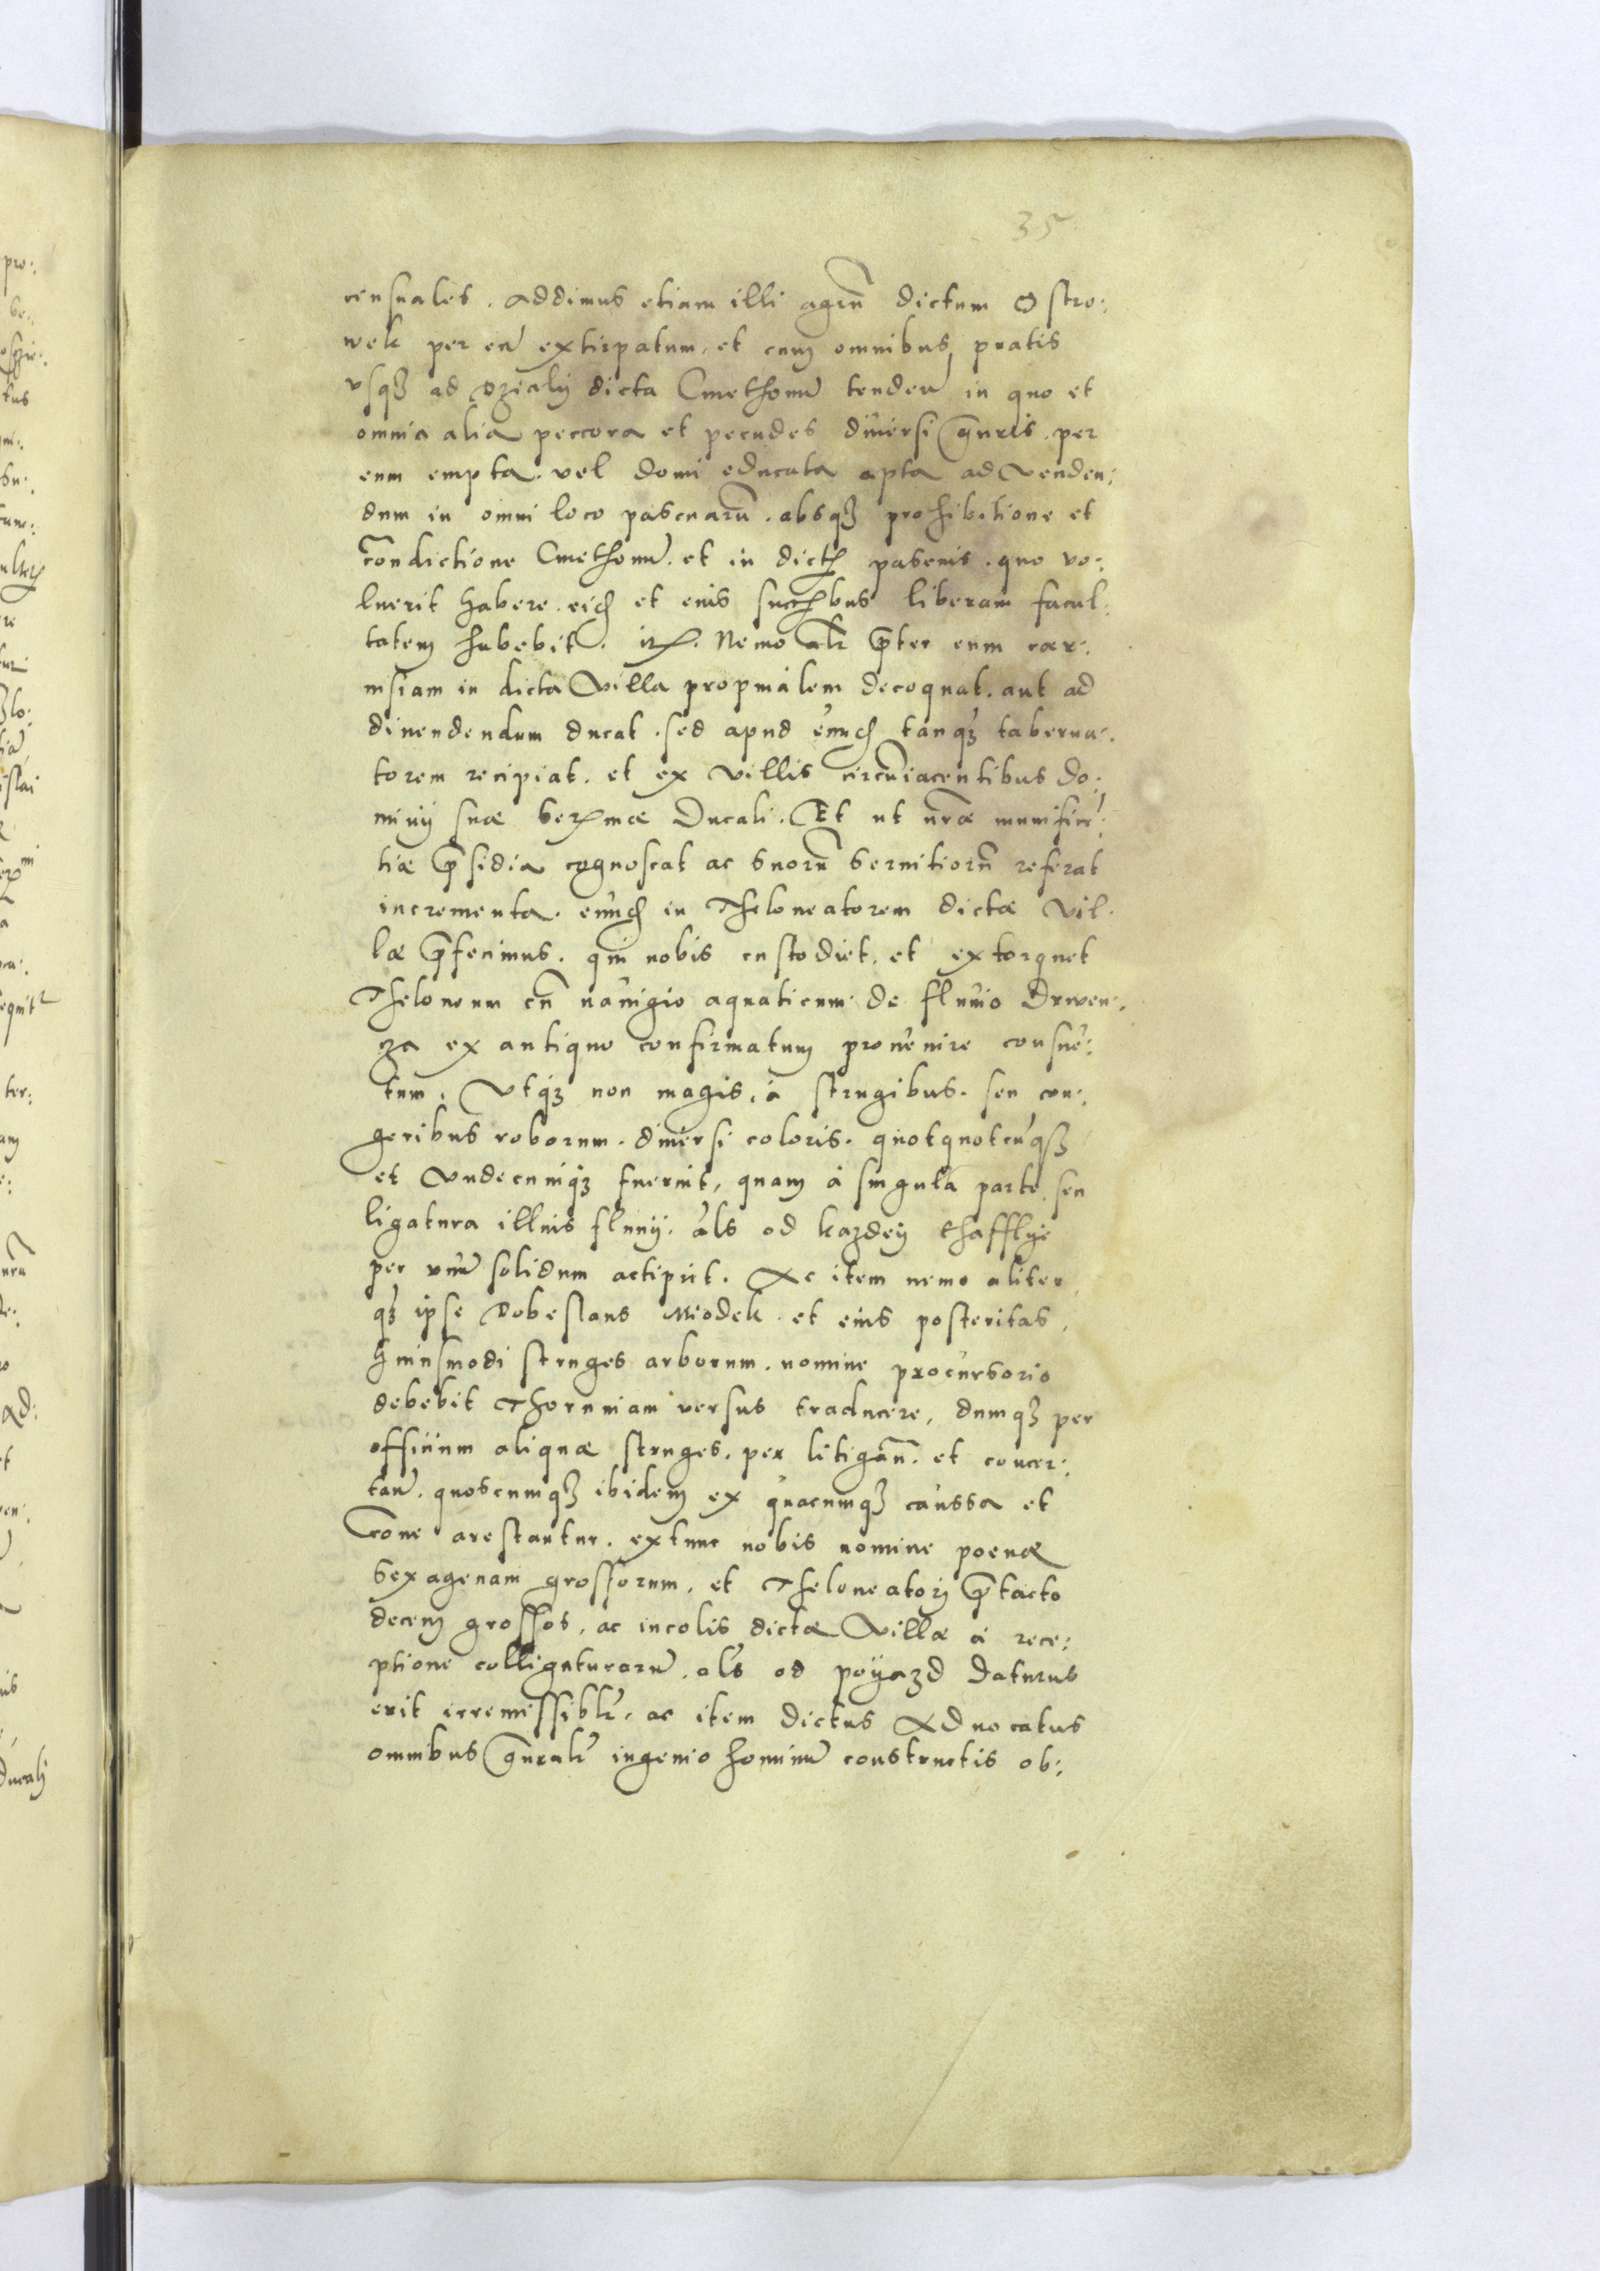 35
censuales. Addimus etiam illi agrū dictum Ostro:
wek per eū extirpatum, et cum omnibus pratis
vsqz ad dzialy dicta Cmethonū tendeñ in quo et
omnia alia peccora et pecudes diuersi gñris per
eum empta vel domi educata apta ad venden:
dum in omni loco pascuarū. absqz prohibitione et
condictione Cmethonū. et in dictis pascuis. quo vo:
luerit habere. eidē et eius succribus liberam facul:
tatem habebit. Nemo alr p̄ter eum cer:
uisiam in dicta Villa propinalem decoquat. aut ad
diuendendum ducat. sed apud eundē tanqz taberna:
torem recipiat. et ex villis circūiacentibus do:
minij suæ Ducali. Et ut nr̄æ munificē:
tiæ p̄sidia cognoscat ac suorū seruitiorū referat
incrementa. eundē in Theloneatorem dictæ Vil:
læ p̄fecimus. qui nobis custodiet. et extorquet
Theloneum cū nauigio aquaticum de fluuio Drwen:
za ex antiquo confirmatum prouenire consue:
tum. Vtqz non magis, à strugibus. seu con:
geribus roborum. diuersi coloris. quotquotcūqz
et Vndecuniqz fuerint, quam à singula parte seu
ligatura illius fluuij. als od kazdey thafflye
per vnū solidum accipiet. Ac item nemo aliter
qz ipse Dobeslaus Miodek. et eius posteritas,
huiusmodi struges arborum. nomine procursorio
debebit Thoruniam versus traducere, dumqz per
offitium aliquæ struges. per litigañ. et concer:
tañ. quoscumqz ibidem ex quacumqz caussa et
rōne arestantur. extunc nobis nomine poenæ
sexagenam grossorum, et Theloneatori p̄tacto
decem grossos, ac incolis dictæ Villæ à rece:
ptione colligaturarū. als od poyazd daturus
erit irremissiblr. ac item dictus Aduocatus
omnibus gñralr ingenio hominū constructis ob: